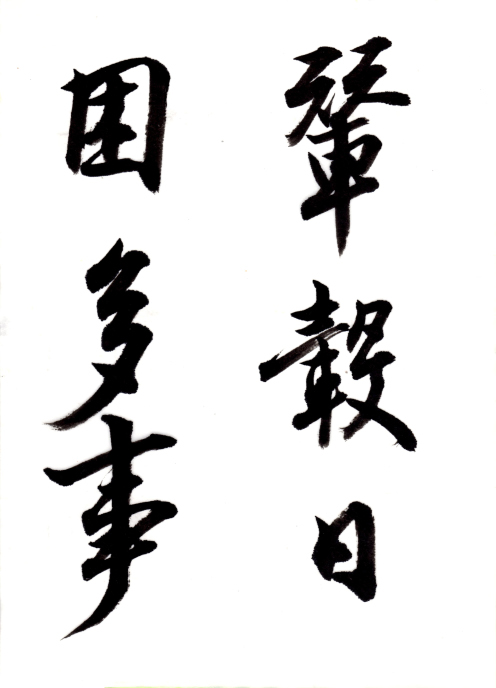 輦轂日
困多事